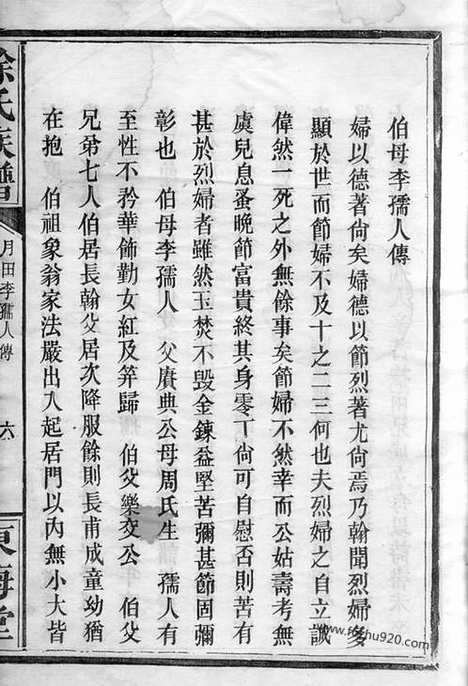 伯母李孺人傳
婦以德著尙矣婦德以節烈著尤尙焉乃翰聞烈婦多
顯於世而節婦不及十之二三何也夫烈婦之自立誠
偉然一死之外無餘事矣節婦不然幸而公姑壽考無
虞兒息蚤晚節富貴終其身零丁尙可自慰否則苦有
甚於烈婦者雖然玉焚不毀金鍊益堅苦彌甚節固彌
彰也 伯母李孺人 父賡典公母周氏生 孺人有
至性不矜華飾勤女紅及笄歸 伯父樂交公 伯父
兄弟七人伯居長翰父居次降服餘則長甫成童幼猶
在抱 伯祖象翁家法嚴出入起居門以內無小大皆
徐氏族譜
月田李孺人傳
六
東海堂
www.feshu920.com